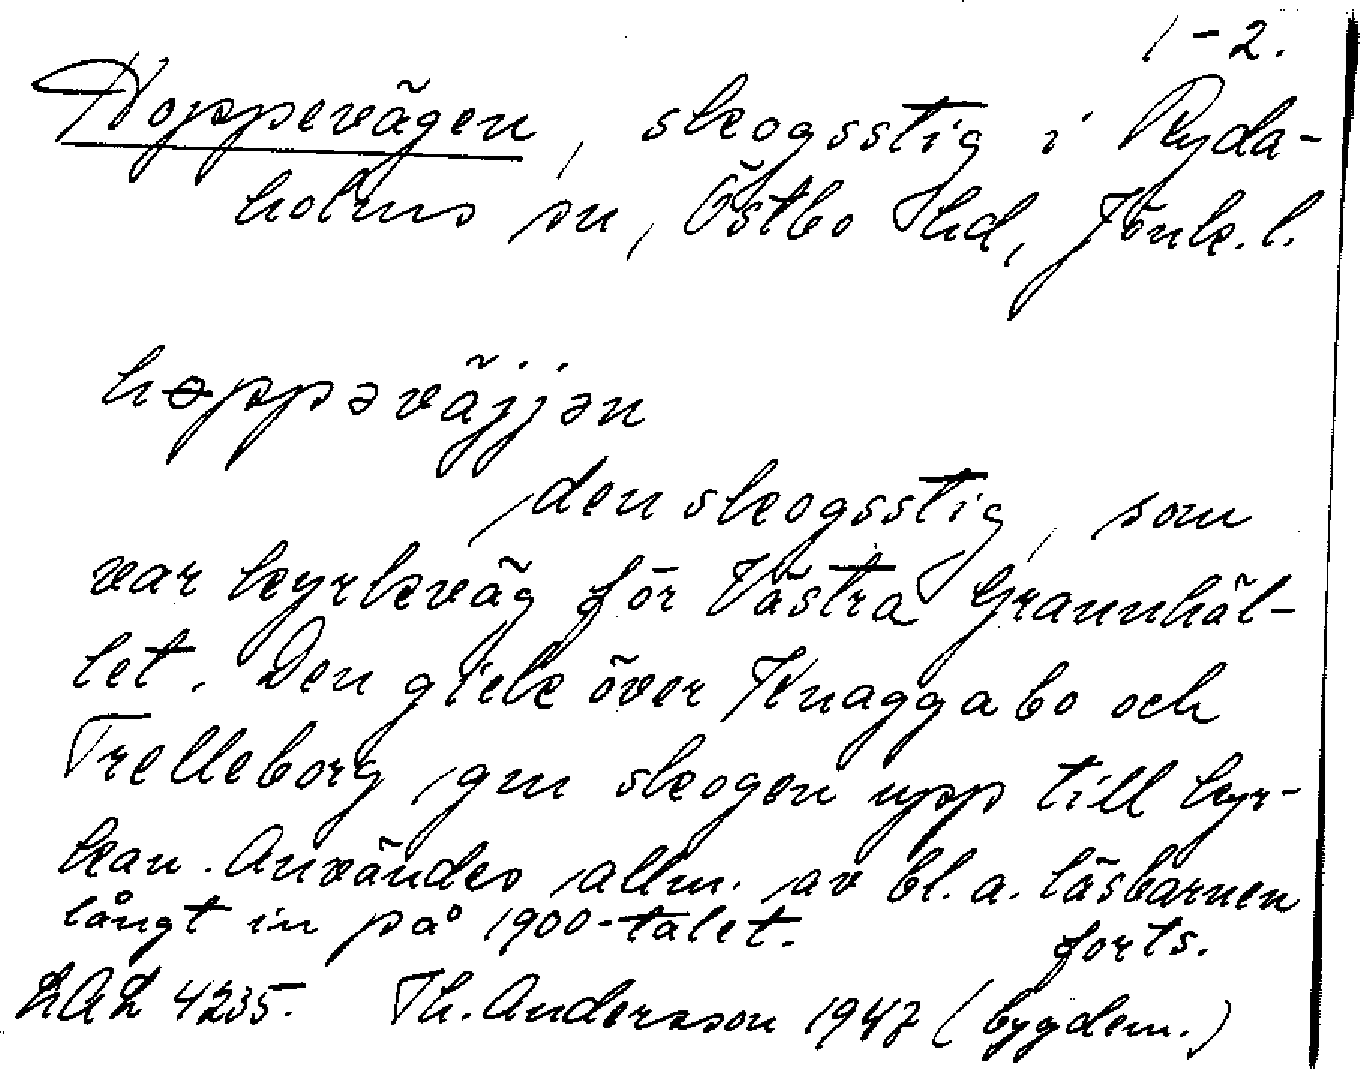 1-2.
Hoppevägen, skogsstig i Ryda-
holms sn, Östbo Hd, Jönk.l.
həppəväjjən
den skogsstig, som
var kyrkväg för Västra Grannhäl-
let. Den gick över Knaggabo och
Trelleborg, gm skogen upp till kyr-
kan. Användes allm. av bl.a. läsbarnen
långt in på 1900-talet.
forts.
LAL 4235. Th. Andersson 1947 (bygdem.)